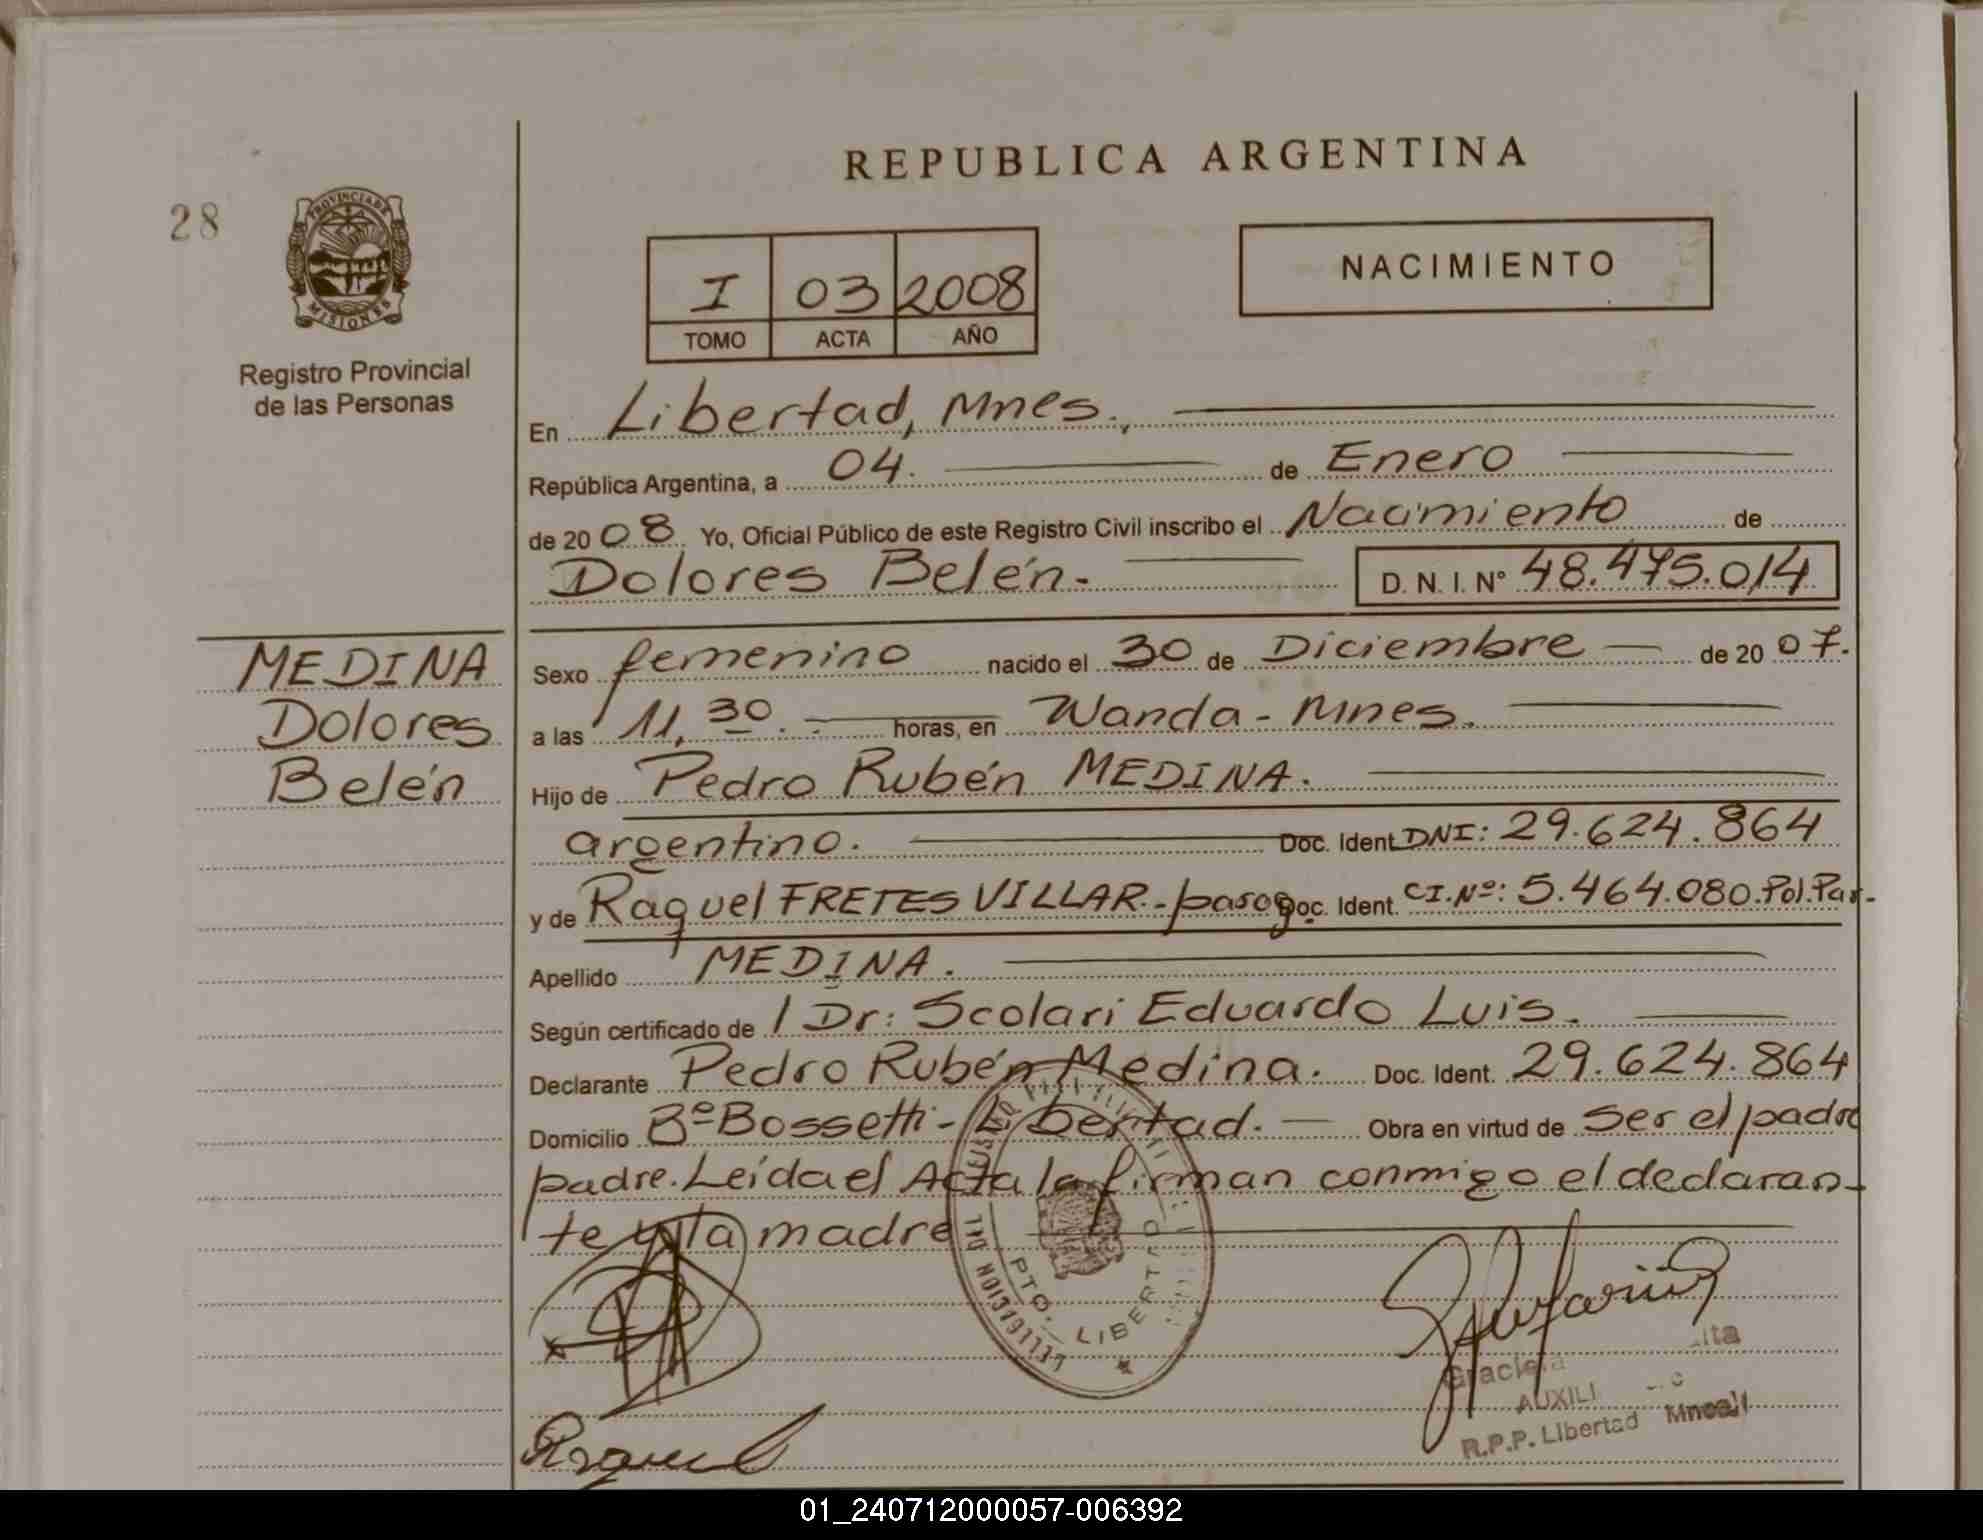 REPUBLICA ARGENTINA
28
PROVINCIA DE
MISIONES
Registro Provincial
de las Personas
I 03 2008
TOMO ACTA AÑO
NACIMIENTO
En Libertad, Mnes.,
República Argentina, a 04. de Enero
de 2008 Yo, Oficial Público de este Registro Civil inscribo el Nacimiento de
Dolores Belén.- D. N. I. N° 48.475.014
MEDINA
Dolores
Belén
Sexo femenino nacido el 30 de Diciembre de 2007.
a las 11,30. horas, en Wanda - Mnes.
Hijo de Pedro Rubén MEDINA.
argentino. Doc. Ident. DNI: 29.624.864
y de Raquel FRETES VILLAR.- parag. Doc. Ident. CI.Nº: 5.464.080.Pol.Par.-
Apellido MEDINA.
Según certificado de / Dr: Scolari Eduardo Luis.
Declarante Pedro Rubén Medina. Doc. Ident. 29.624.864
Domicilio Bº Bossetti - Libertad. Obra en virtud de ser el padre
padre. Leída el Acta la firman conmigo el declaran-
te y la madre
PTO. LIBERTAD
Graciela
AUXILI
R.P.P. Libertad Mnes
01_240712000057-006392